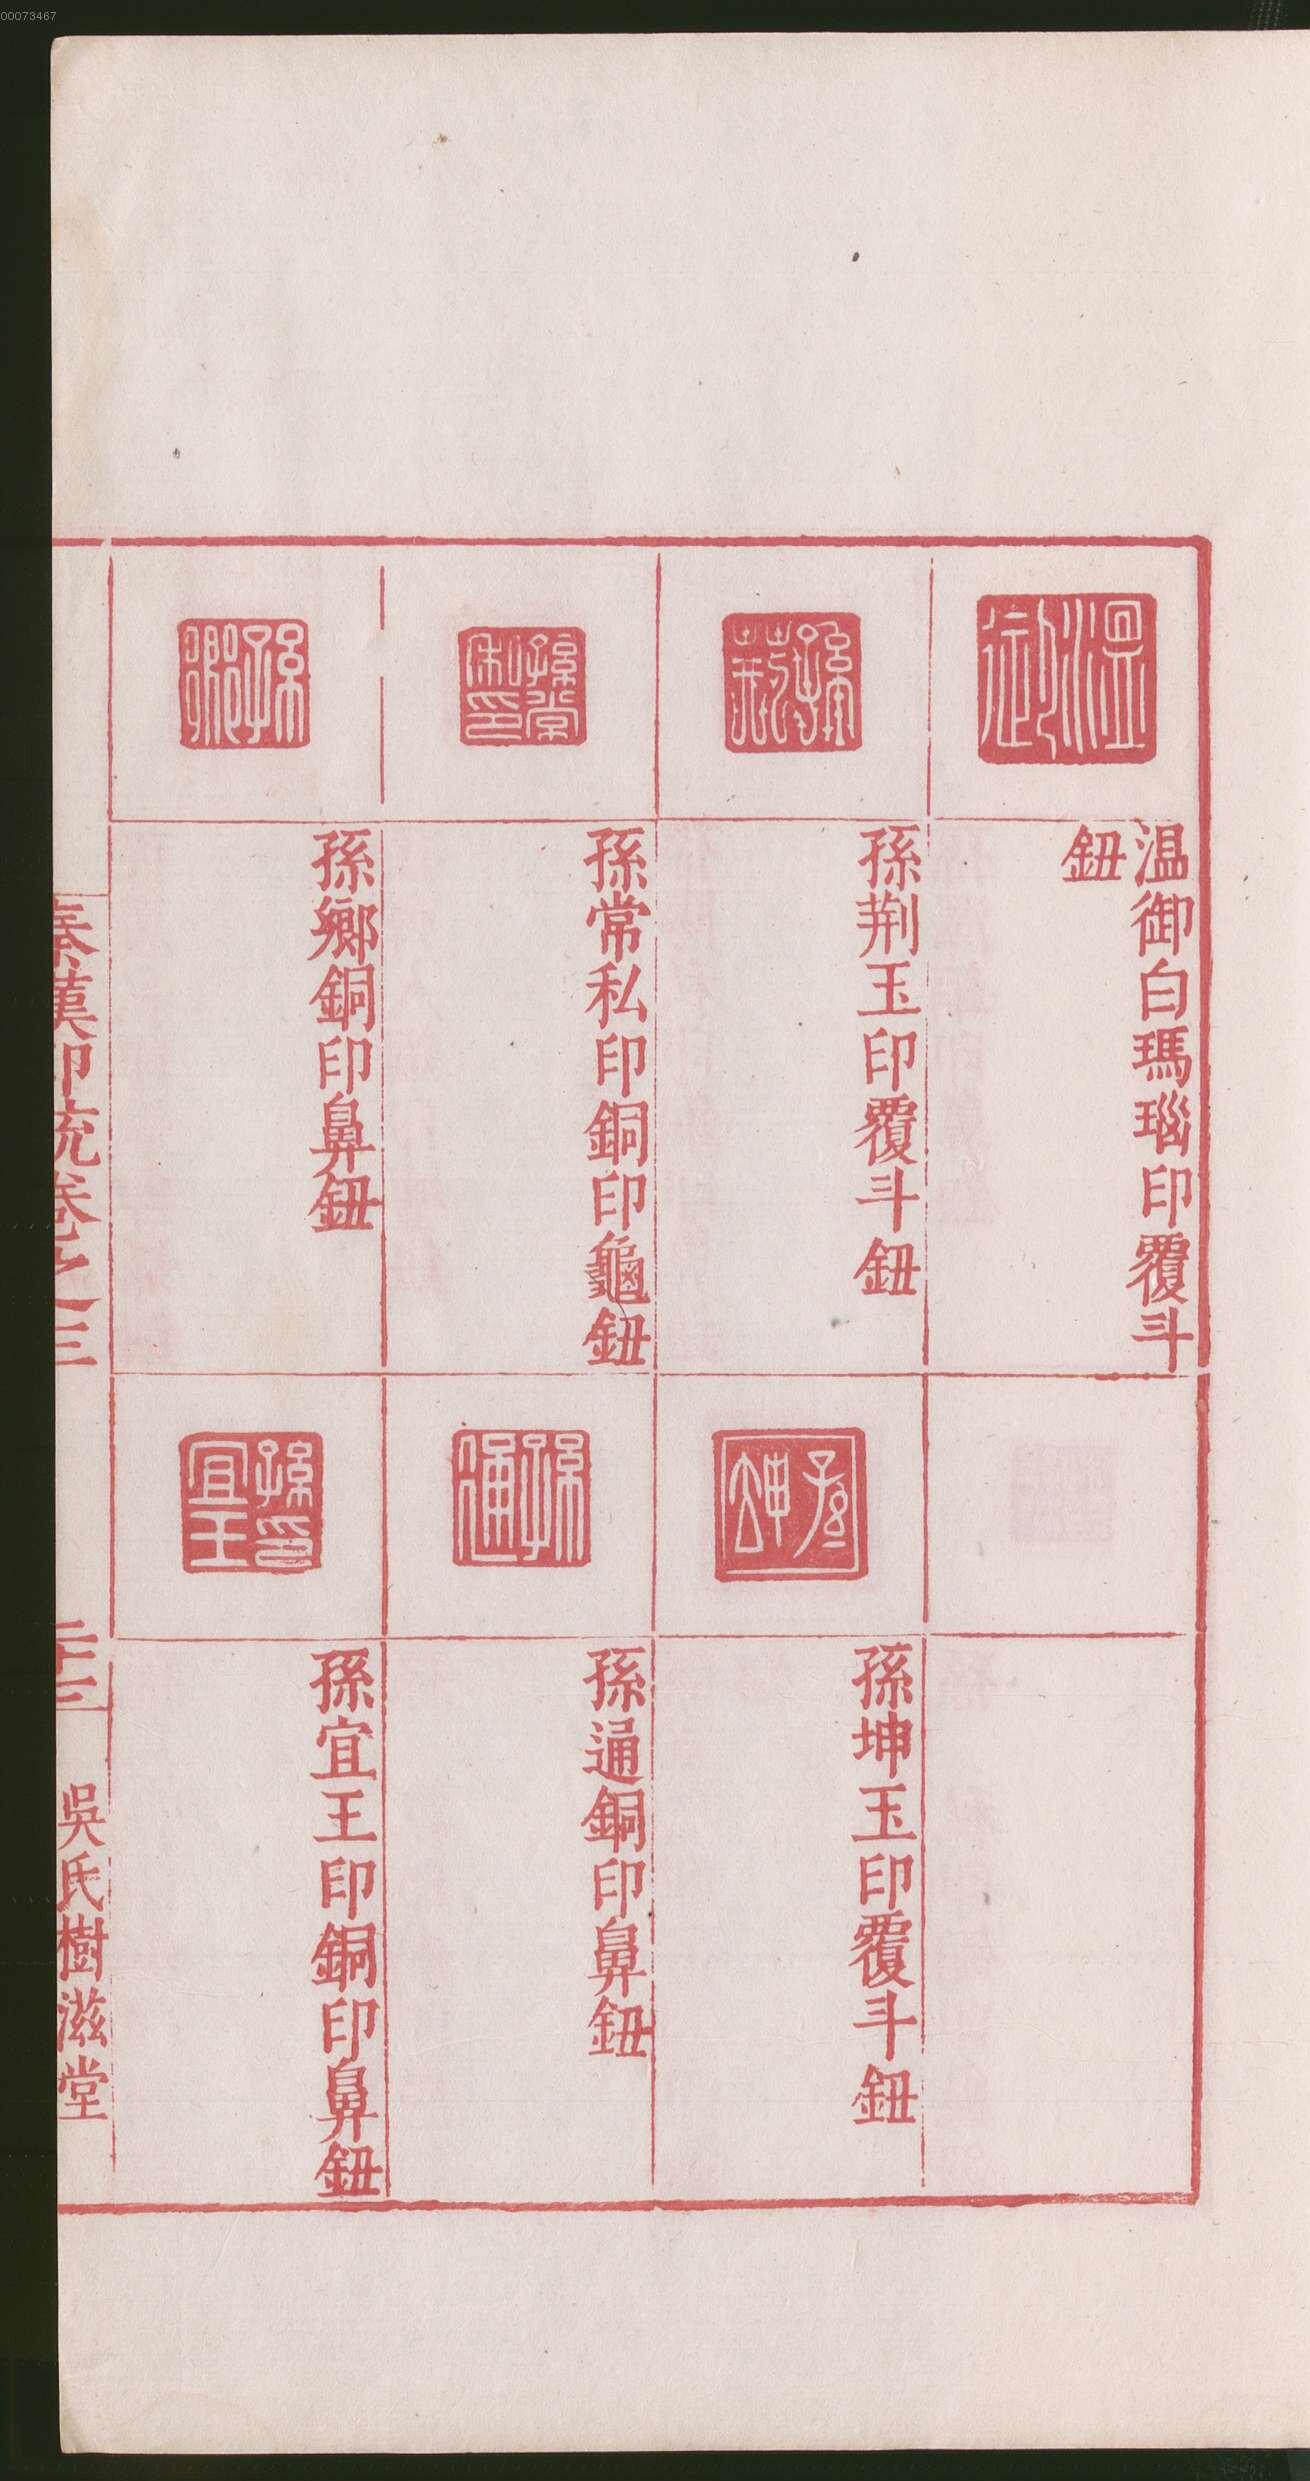 00073467
溫御
温御白瑪瑙印覆斗
鈕
孫荆
孫荆玉印覆斗鈕
孫常私印
孫常私印銅印龜鈕
孫鄉
孫鄉銅印鼻鈕
孫坤
孫坤玉印覆斗鈕
孫通
孫通銅印鼻鈕
孫印宜王
孫宜王印銅印鼻鈕
秦漢印統卷之三
二十三
吳氏樹滋堂